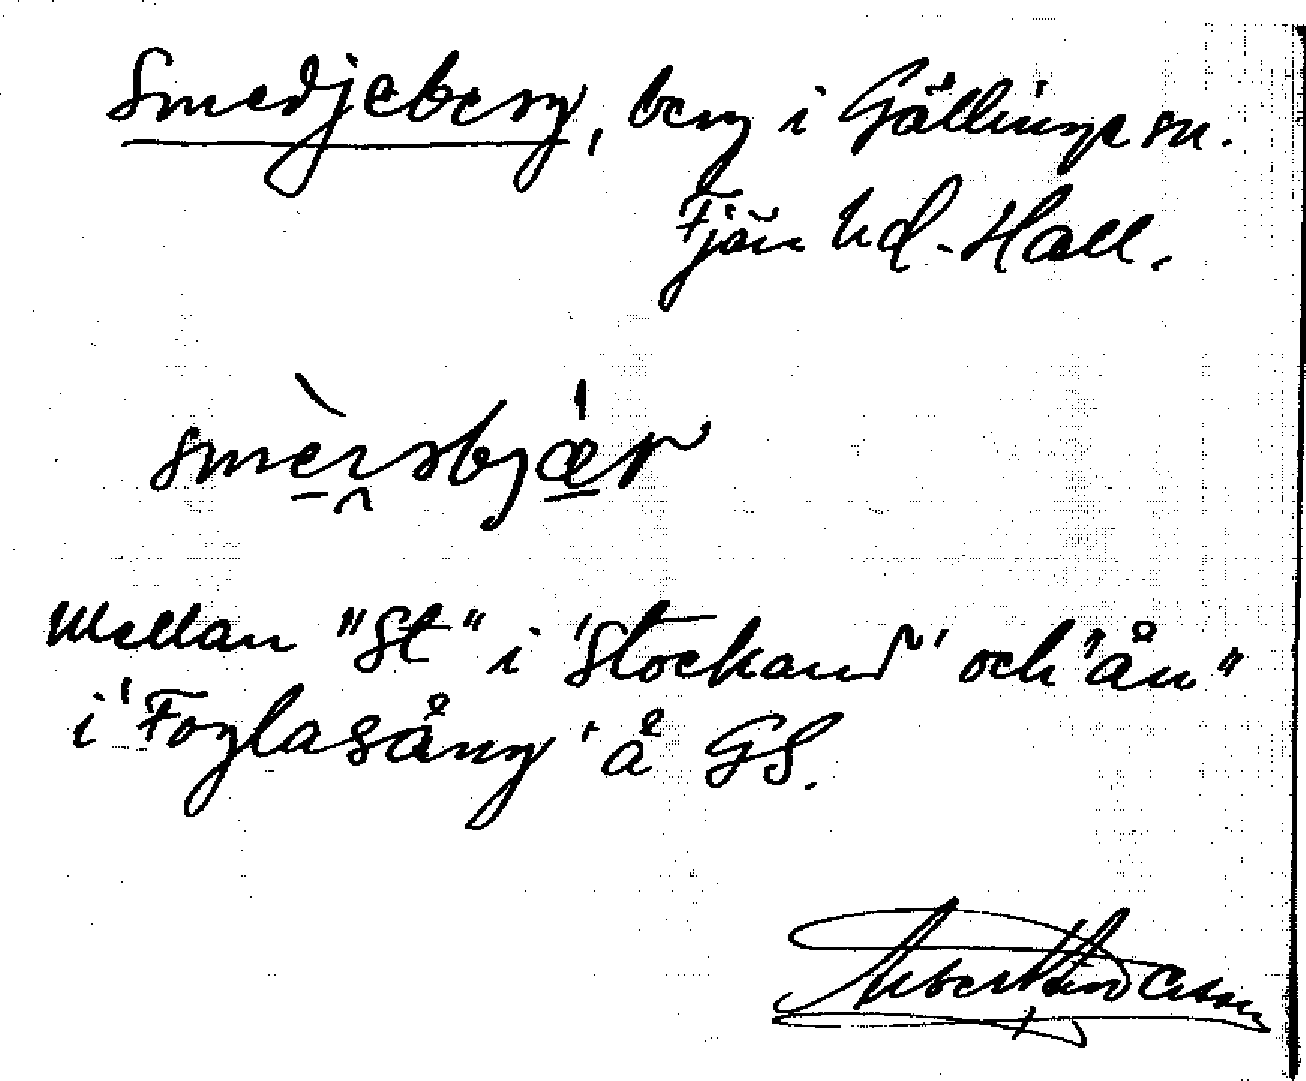 Smedjeberg, berg i Gällinge sn.
Fjäre hd. Hall.
smèrsbjær
Mellan "St" i 'Stockand' och "ån"
i 'Foglasång' å GS.